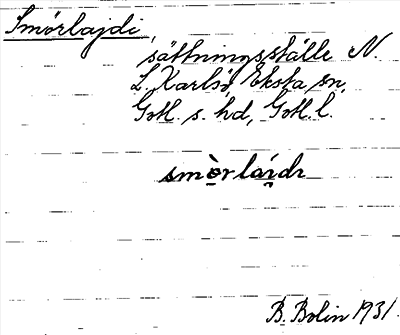 Smörlajdi,
sättningsställe N.
L. Karlsö, Eksta sn,
Gotl. s. hd, Gotl. l.
smòrlái̯dı
B. Bolin 1931.